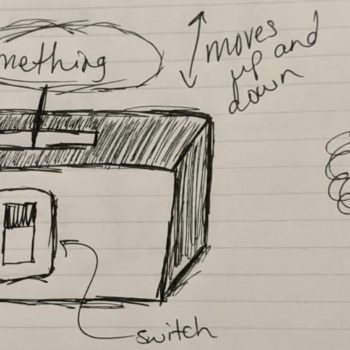 mething
moves
up and
down
switch